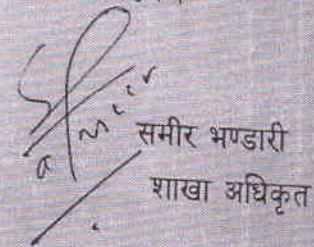 समीर भण्डारी
शाखा अधिकृत